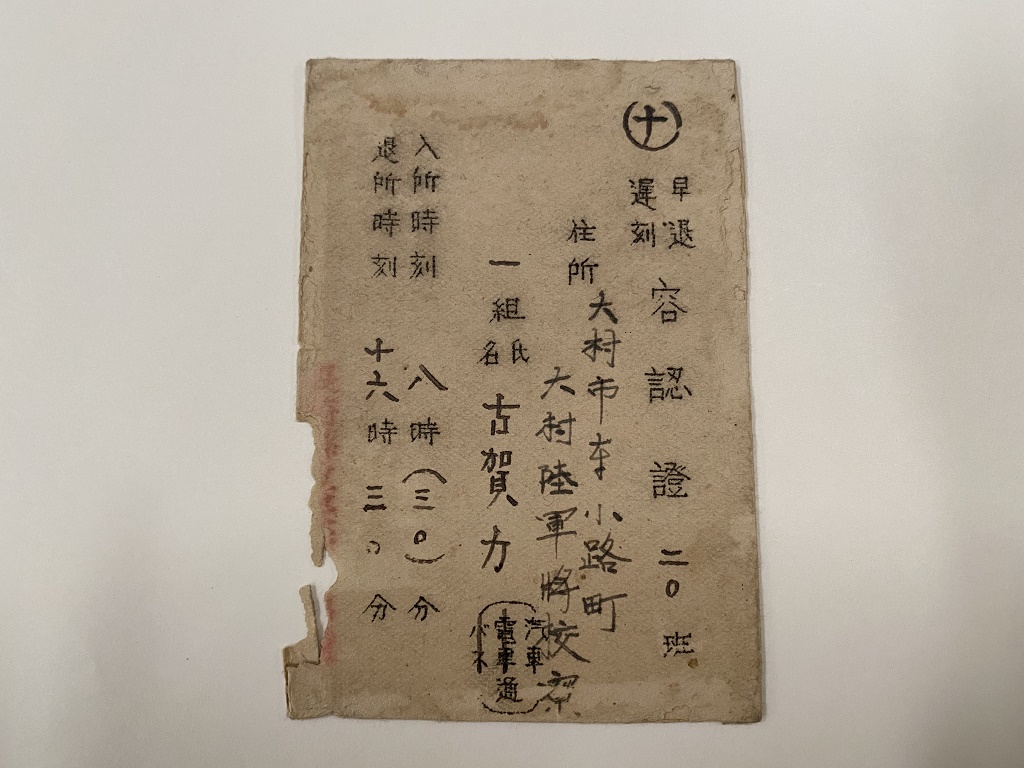 ㊉
早退
遲刻
容認證 二〇班
住所 大村市車小路町
大村陸軍將校寮
一組
氏名 古賀力
汽車
電車通
バス
入所時刻 八時(三〇)分
退所時刻 十六時三〇分